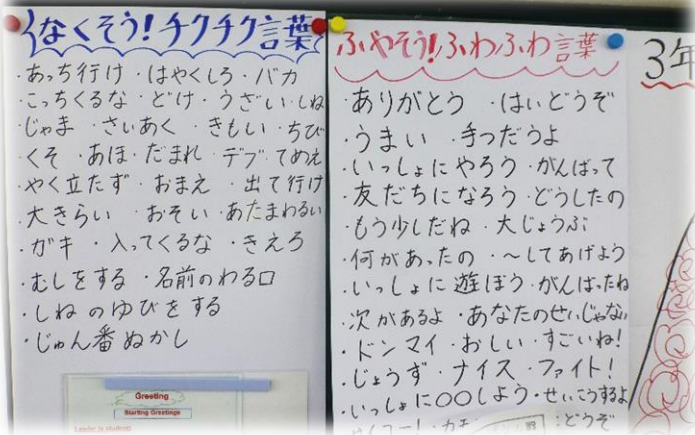 なくそう!チクチク言葉
・あっち行け ・はやくしろ・バカ
・こっちくるな・どけ・うざい・しね
・じゃま ・さいあく ・きもい ・ちび
・くそ ・あほ・だまれ ・デブ・てめえ
・やく立たず ・おまえ ・出て行け
・大きらい ・おそい ・あたまわるい
・ガキ ・入ってくるな ・きえろ
・むしをする ・名前のわる口
・しねのゆびをする
・じゅん番ぬかし
Greeting
Starting Greetings
ふやそう!ふわふわ言葉
・ありがとう ・はいどうぞ
・うまい ・手つだうよ
・いっしょにやろう ・がんばって
・友だちになろう ・どうしたの
・もう少しだね ・大じょうぶ
・何があったの ・〜してあげよう
・いっしょに遊ぼう ・がんばったね
・次があるよ ・あなたのせいじゃない
・ドンマイ ・おしい ・すごいね!
・じょうず ・ナイス ・ファイト!
・いっしょに〇〇しよう ・せいこうするよ
・どうぞ
3年